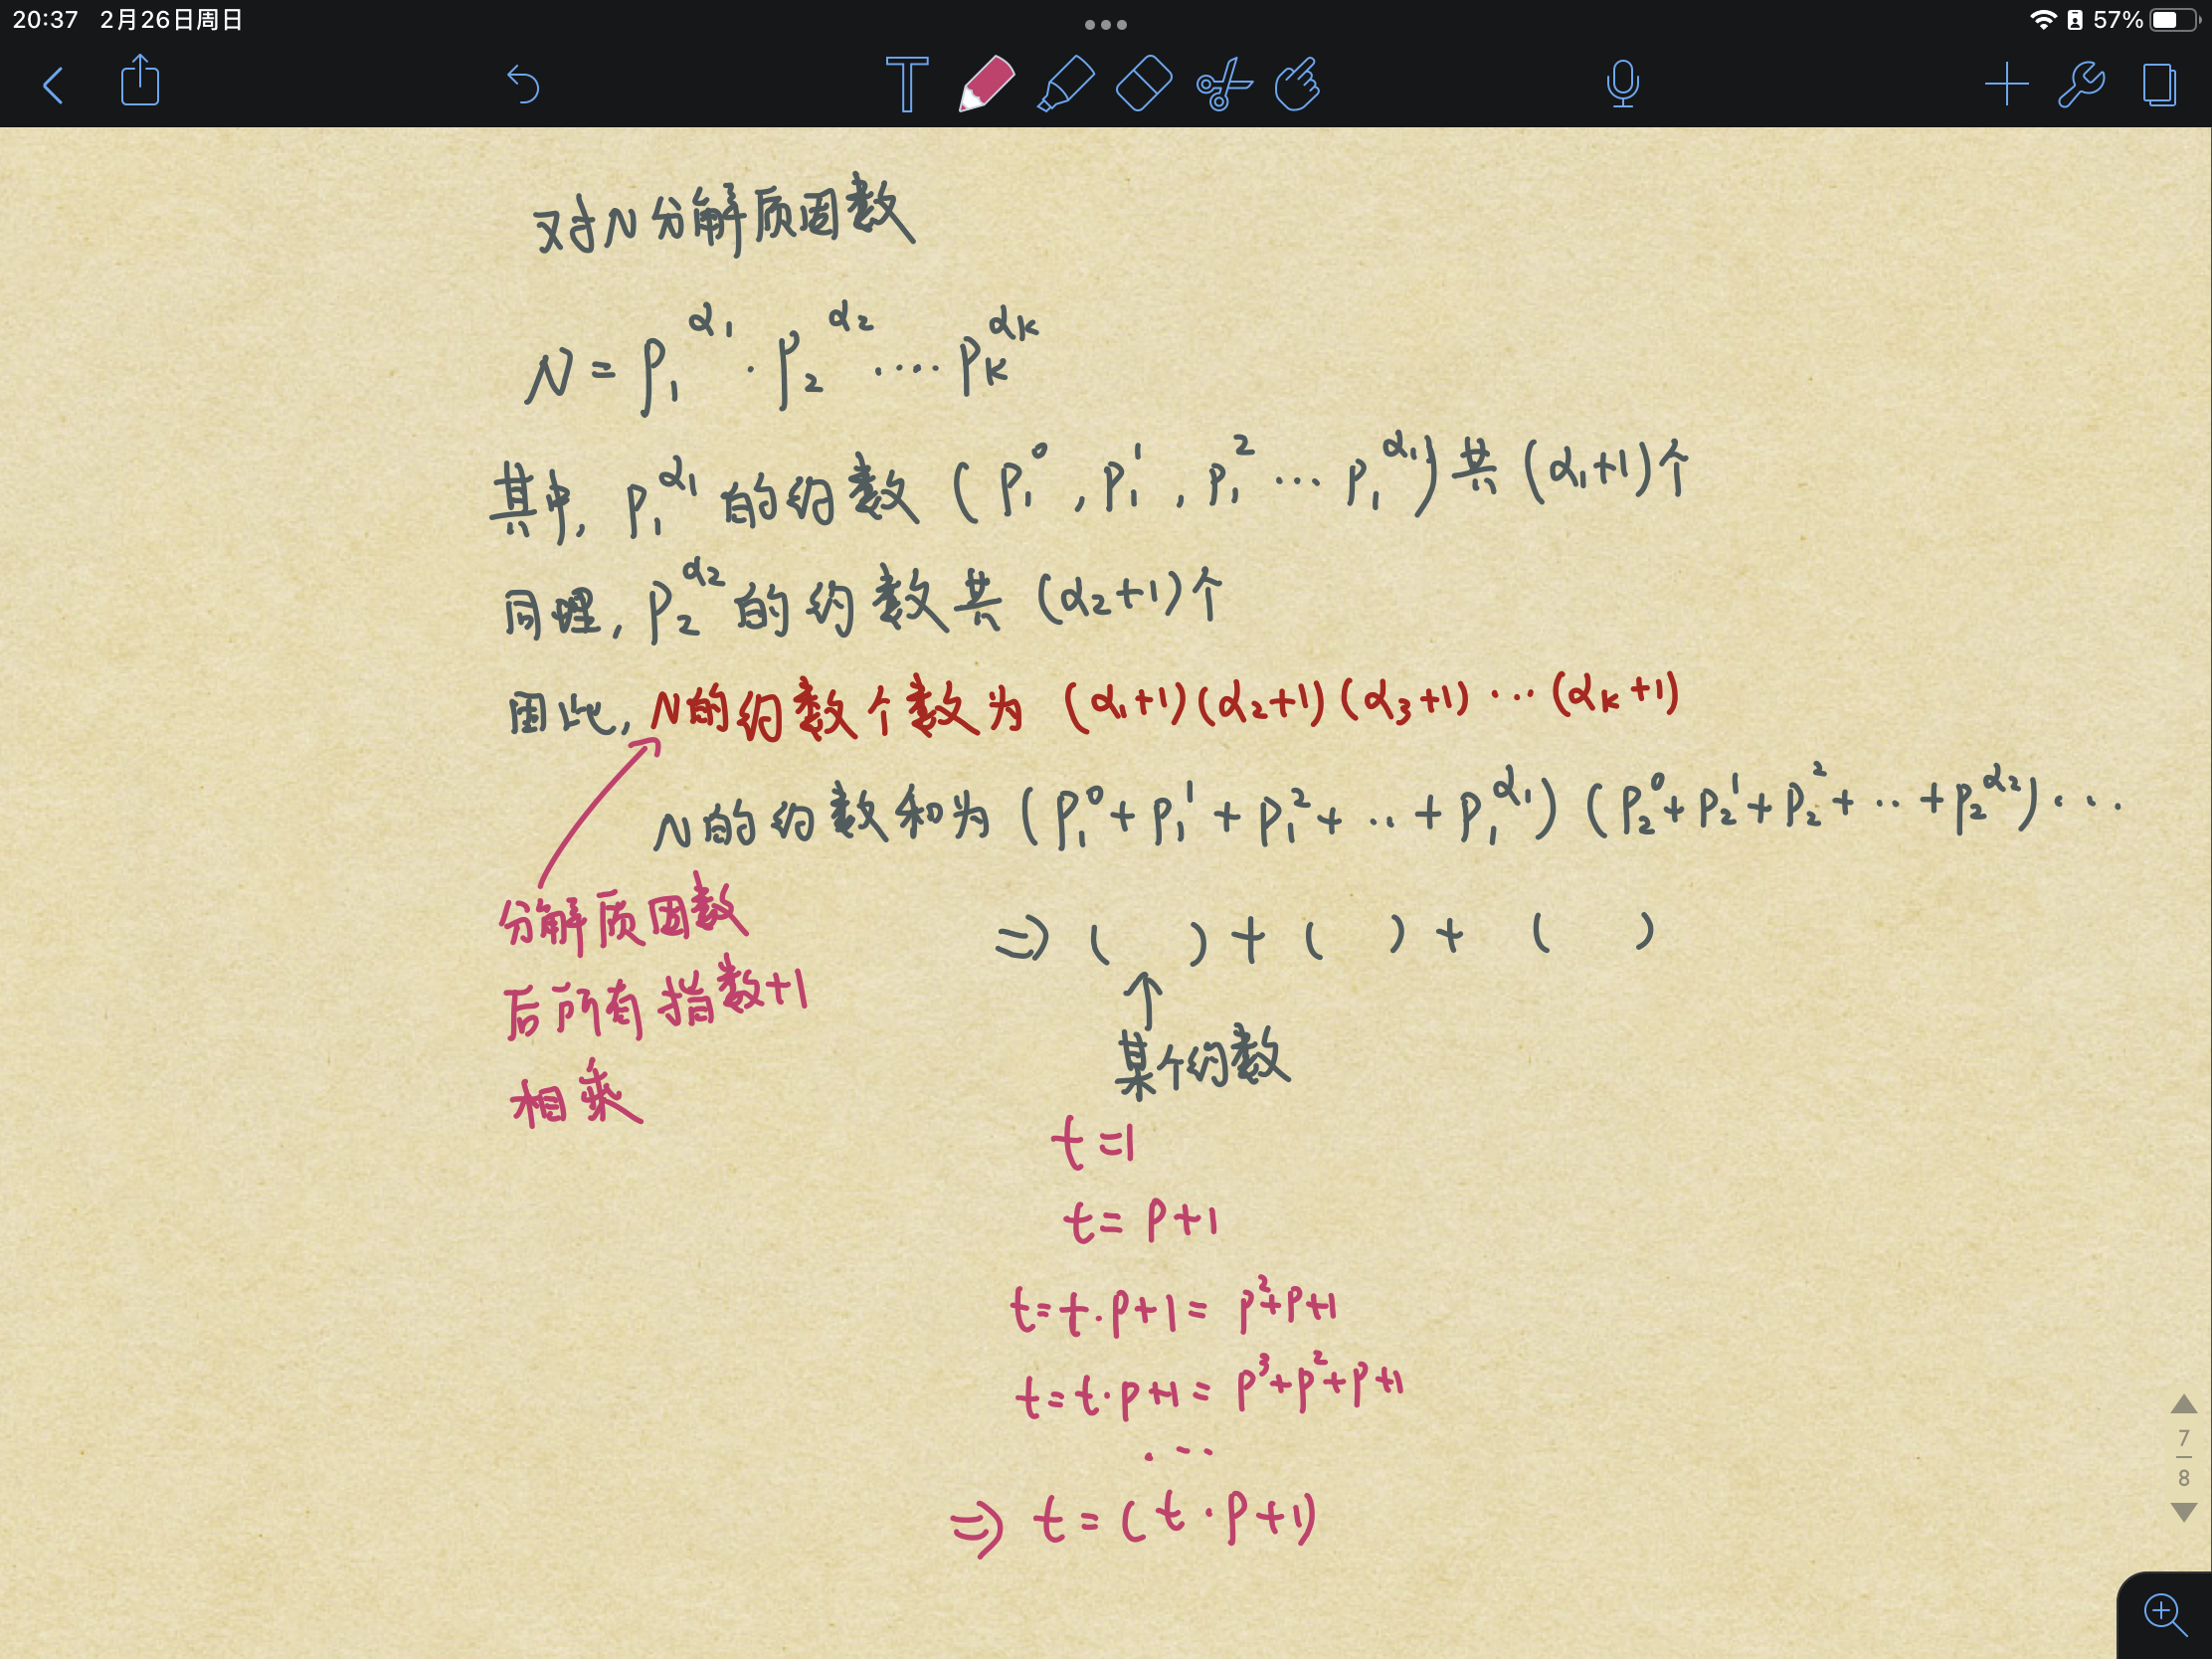 20:37 2月26日周日
57%
T
对N分解质因数
N = p₁^α₁ · p₂^α₂ ···· pₖ^αₖ
其中, p₁^α₁ 的约数 (p₁⁰, p₁¹, p₁² ··· p₁^α₁) 共 (α₁+1)个
同理, p₂^α₂ 的约数共 (α₂+1)个
因此, N的约数个数为 (α₁+1)(α₂+1)(α₃+1) ··· (αₖ+1)
N的约数和为 (p₁⁰+p₁¹+p₁²+··+p₁^α₁) (p₂⁰+p₂¹+p₂²+··+p₂^α₂)···
分解质因数
后所有指数+1
相乘
⇒ ( ) + ( ) + ( )
↑
某个约数
t=1
t= p+1
t=t·p+1= p²+p+1
t=t·p+1= p³+p²+p+1
···
⇒ t=(t·p+1)
7
8